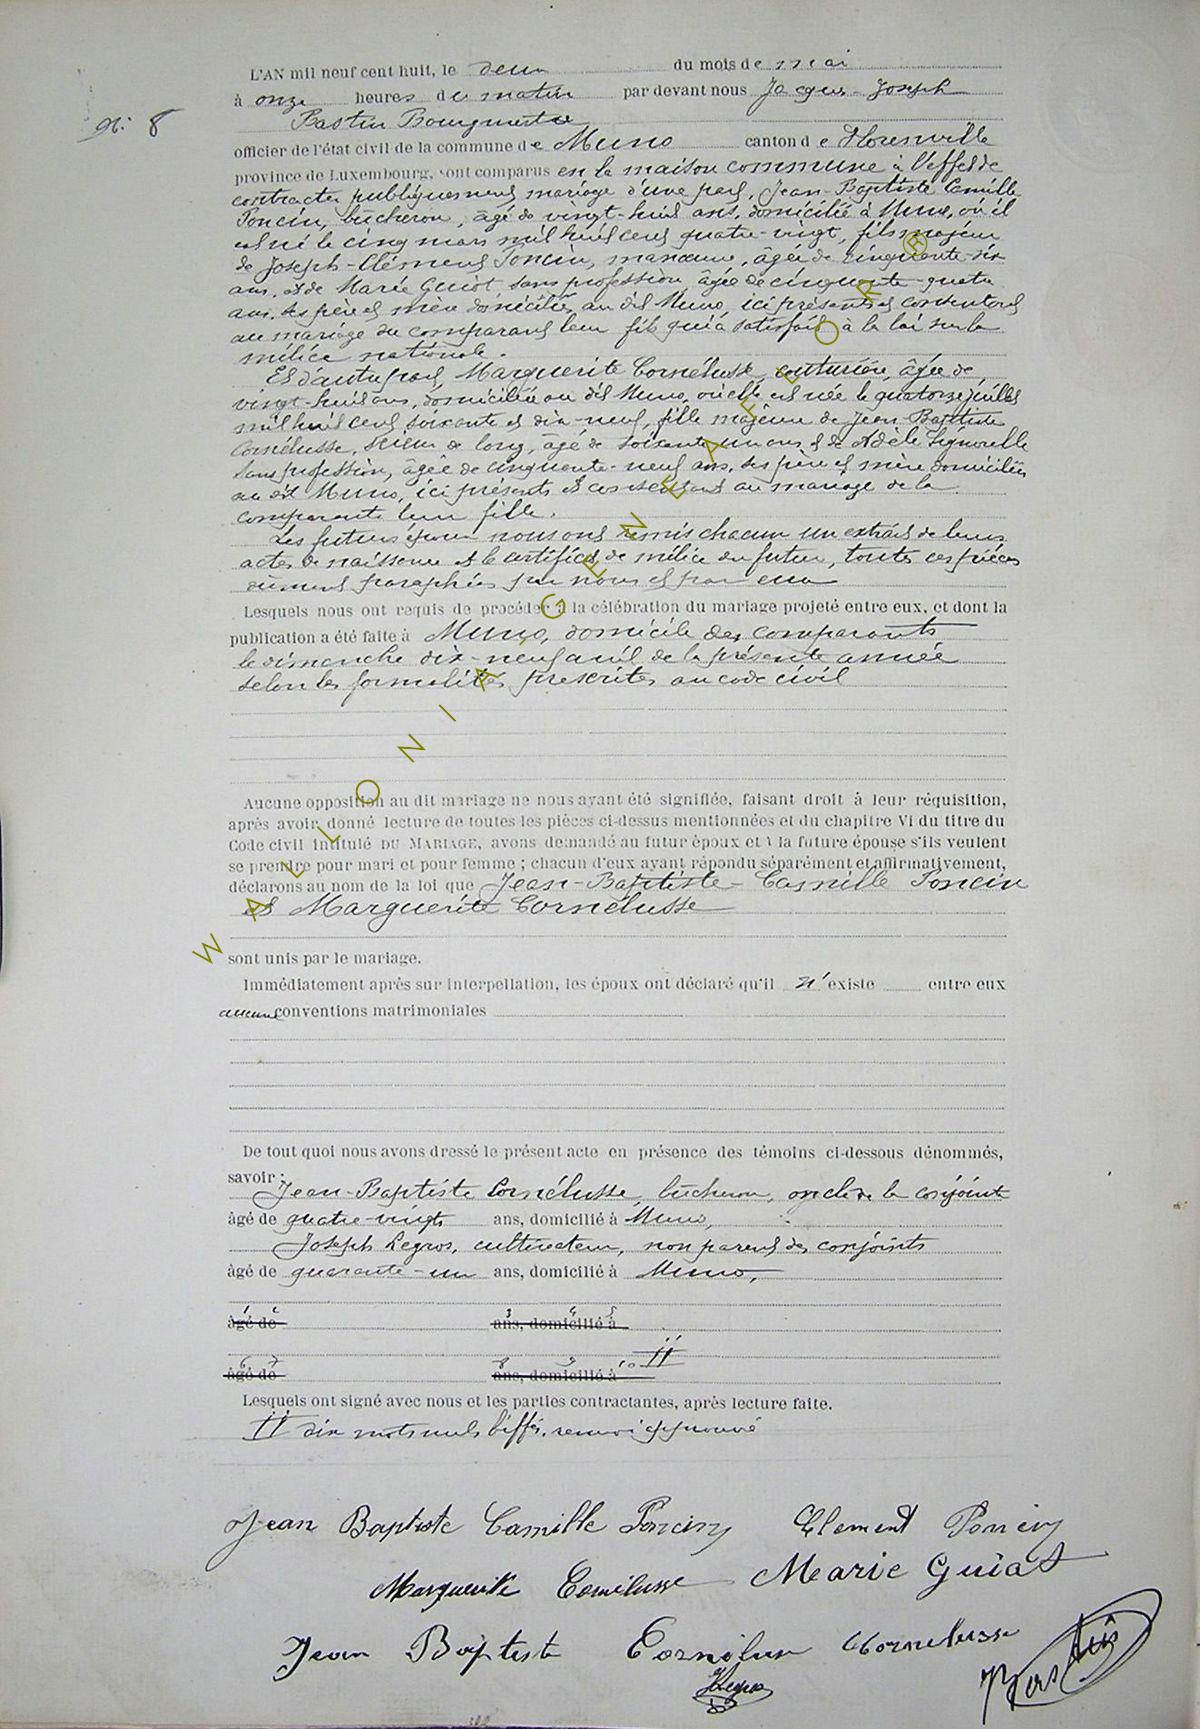 N: 8
L'AN mil neuf cent huit, le deux du mois de mai
à onze heures du matin par devant nous Jacques-Joseph
Bastin Bourgmestre
officier de l'état civil de la commune de Muno canton de Florenville
province de Luxembourg, sont comparus en la maison commune à l'effet de
contracter publiquement mariage d'une part, Jean-Baptiste Camille
Poncin, bûcheron, âgé de vingt-huit ans, domicilié à Muno, où il
est né le cinq mars mil huit cent quatre-vingt, fils majeur
de Joseph-Clément Poncin, manœuvre, âgé de cinquante-six
ans, et de Marie Guiot, sans profession, âgée de cinquante-quatre
ans, ses père et mère domiciliés au dit Muno, ici présents et consentant
au mariage du comparant leur fils qui a satisfait à la loi sur la
milice nationale.
Et d'autre part, Marguerite Cornélusse, couturière, âgée de
vingt-huit ans, domiciliée au dit Muno, où elle est née le quatorze juillet
mil huit cent soixante et dix-neuf, fille majeure de Jean-Baptiste
Cornélusse, scieur de long, âgé de soixante un ans et de Adèle Lignorelle
sans profession, âgée de cinquante-neuf ans, ses père et mère domiciliés
au dit Muno, ici présents et consentant au mariage de la
comparante leur fille.
Les futurs époux nous ont remis chacun un extrait de leurs
actes de naissance et le certificat de milice du futur, toutes ces pièces
dûment paraphées par nous et par eux
Lesquels nous ont requis de procéder à la célébration du mariage projeté entre eux, et dont la
publication a été faite à Muno, domicile des comparants
le dimanche dix-neuf avril de la présente année
selon les formalités prescrites au code civil
Aucune opposition au dit mariage ne nous ayant été signifiée, faisant droit à leur réquisition,
après avoir donné lecture de toutes les pièces ci-dessus mentionnées et du chapitre VI du titre du
Code civil intitulé DU MARIAGE, avons demandé au futur époux et à la future épouse s'ils veulent
se prendre pour mari et pour femme ; chacun d'eux ayant répondu séparément et affirmativement,
déclarons au nom de la loi que Jean-Baptiste-Camille Poncin
et Marguerite Cornélusse
sont unis par le mariage.
Immédiatement après sur interpellation, les époux ont déclaré qu'il n'existe entre eux
aucune conventions matrimoniales
De tout quoi nous avons dressé le présent acte en présence des témoins ci-dessous dénommés,
savoir :
Jean-Baptiste Cornélusse, bûcheron, oncle de la conjointe
âgé de quatre-vingts ans, domicilié à Muno,
Joseph Legros, cultivateur, non parent des conjoints
âgé de quarante-un ans, domicilié à Muno,
1 2 3 4 5
âgé de ans, domicilié à
6 7 8 9 10 II
âgé de ans, domicilié à
Lesquels ont signé avec nous et les parties contractantes, après lecture faite.
II dix mots nuls biffés, renvoi approuvé
Jean Baptiste Camille Poncin Clement Poncin
Marguerite Cornelusse Marie Guiot
Jean Baptiste Cornelusse Cornelusse
JLegros Bastin
WALLONIA GENEAFLOR ®